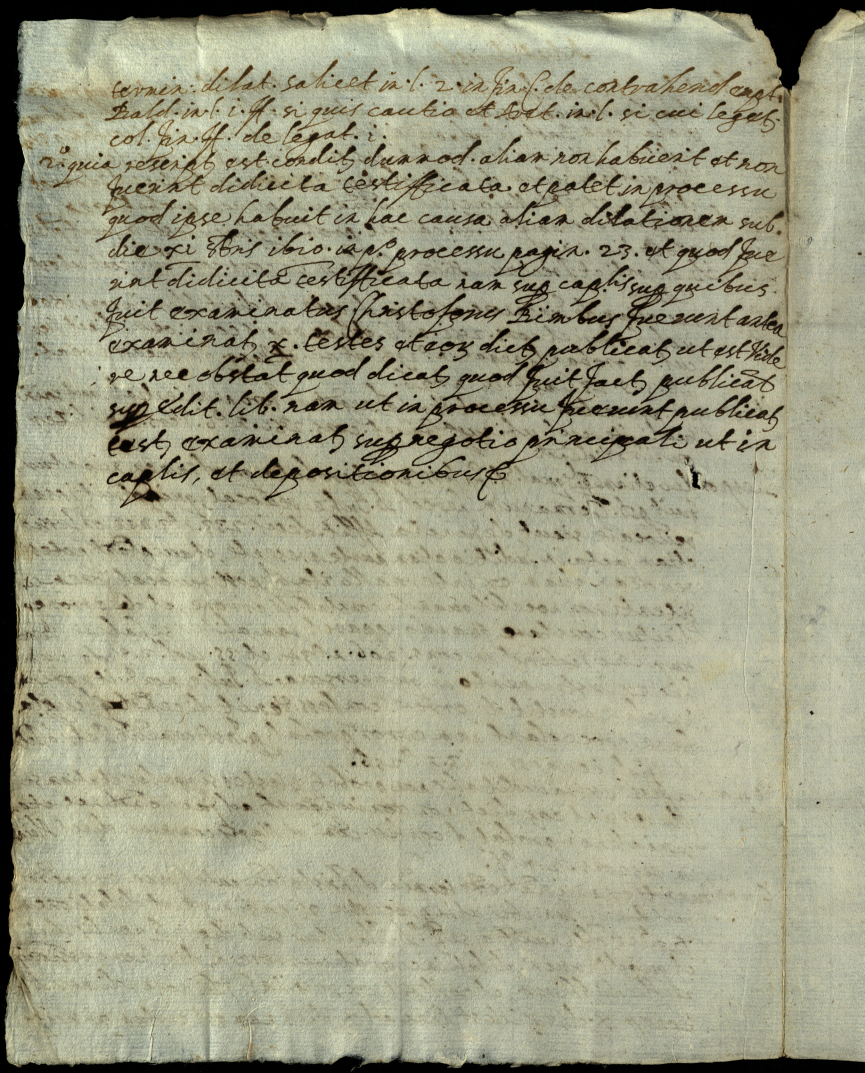 termin. dilat. salicet in l. 2. in fin. C. de contrahend. empt.
Bald. in l. i. ff. si quis cautio et Aret. in l. si cui legat.
col. fin. ff. de legat. i.
2.º quia reserat est condit dummod. aliam non habuerit et non
fuerint didicita testifficata et patet in processu
quod ipse habuit in hac causa aliam dilationem sub.
die xi in p.º processu pagin. 23. et quod fue
rint didicita testifficata nam sup caplis sup quibus
fuit examinatus Christoforus Bimbus fuerunt antea
examinat x. testes et eor dict publicat ut est vide
re nec obstat quod dicat quod fuit fact publicat
sup edit. lib. nam ut in processu fuerunt publicat
test examinat sup negotio principali ut in
caplis, et depositionibus